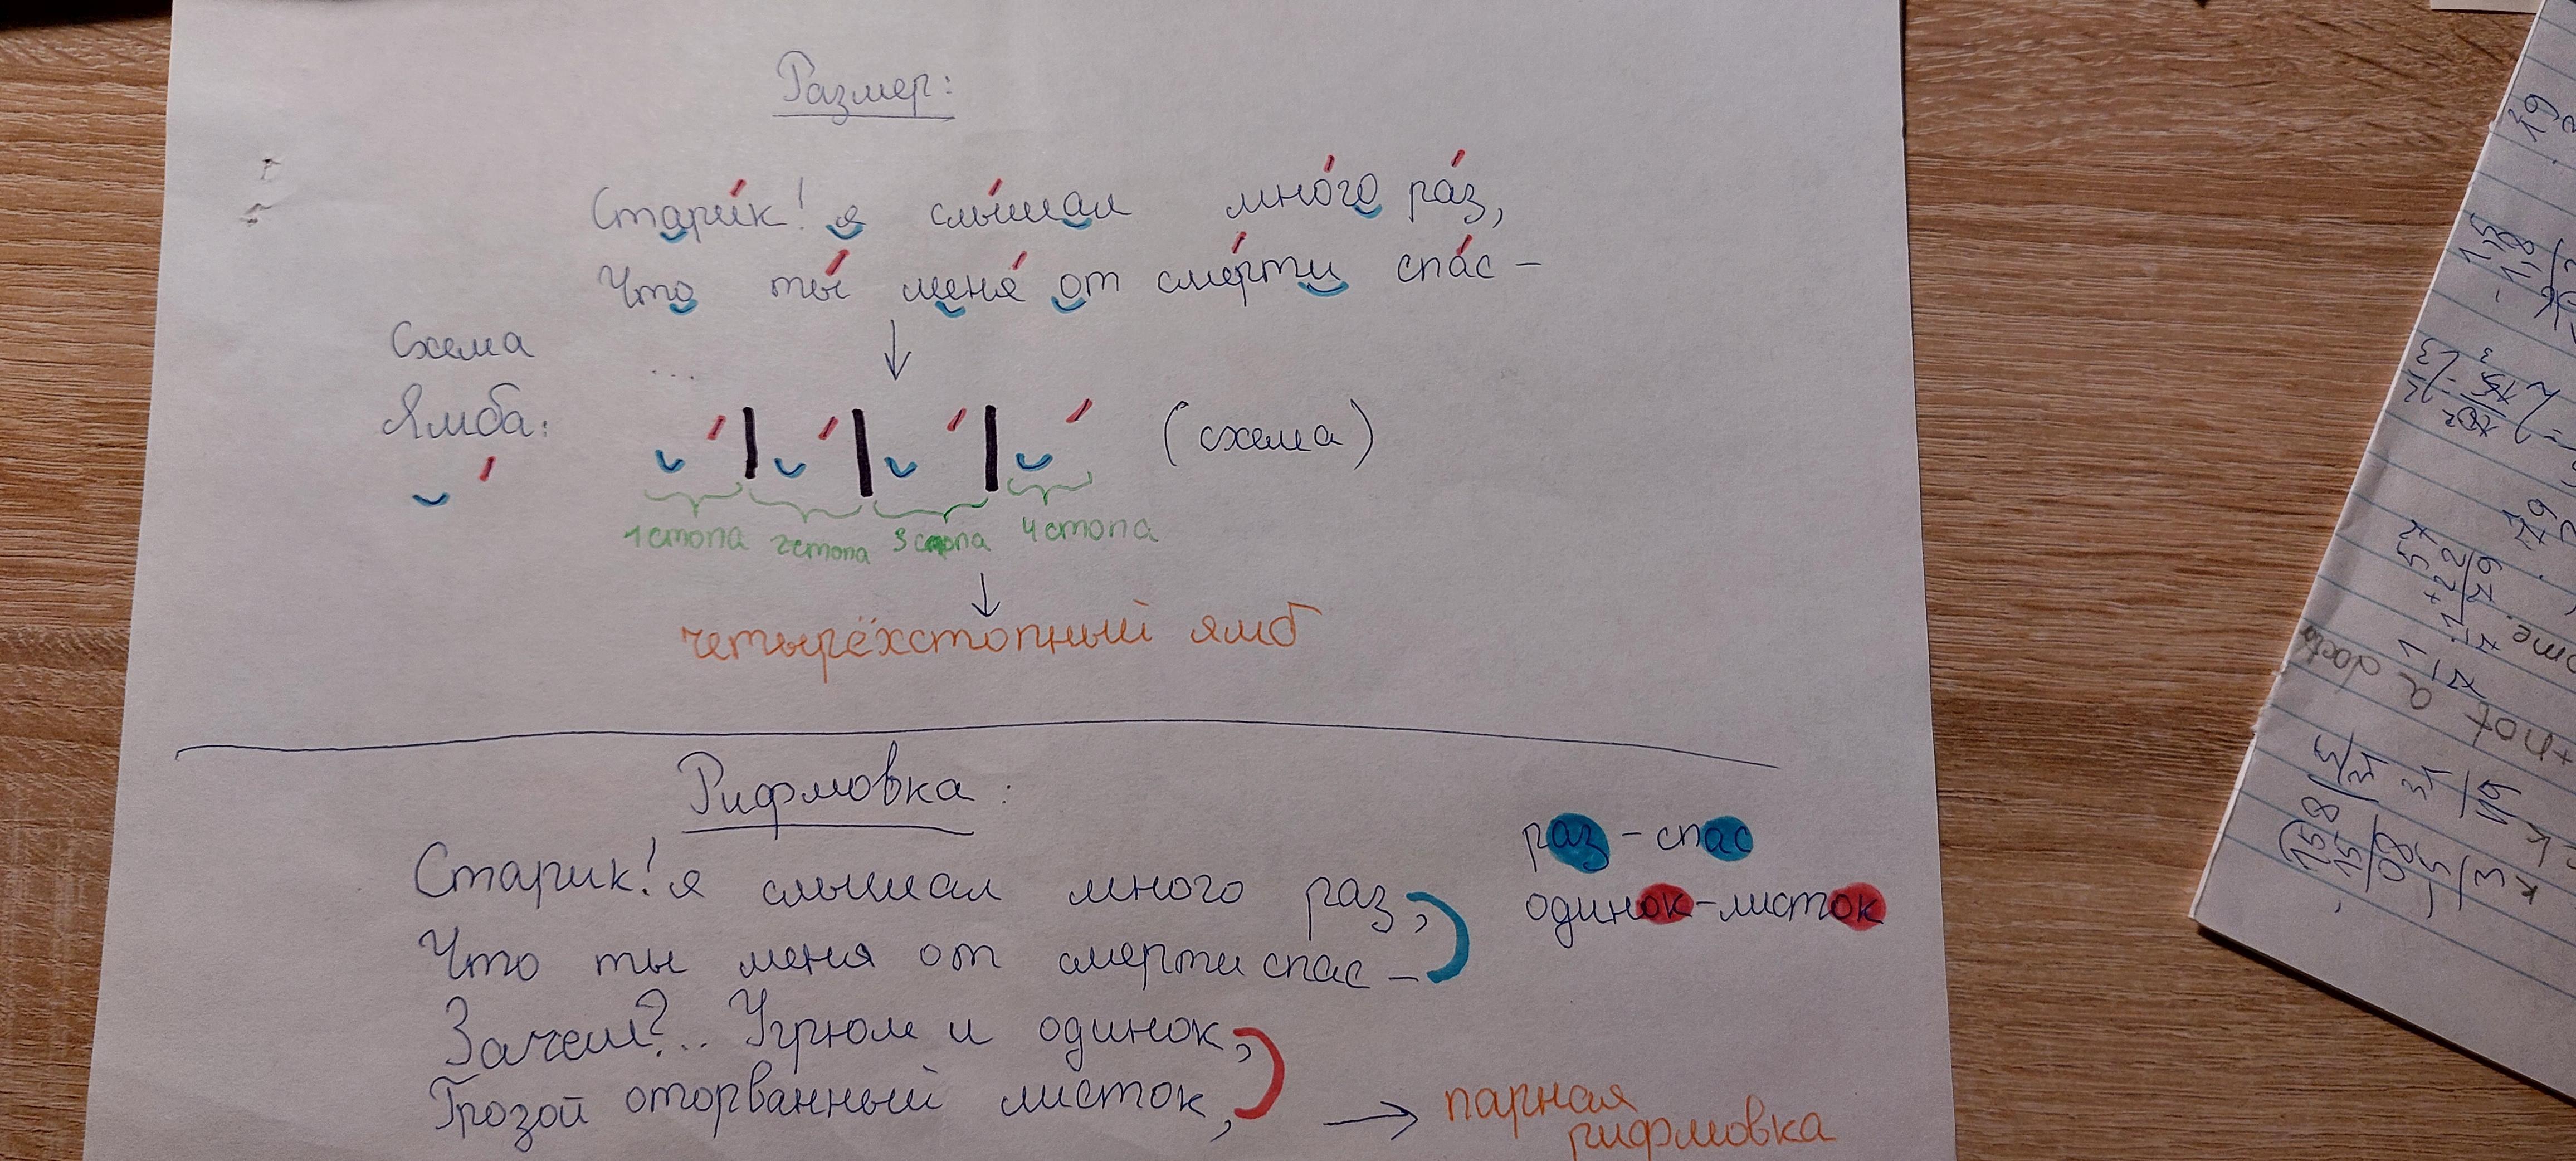 Размер:
Старик! я слышал много раз,
Что ты меня от смерти спас –
Схема
Ямба:
...
(схема)
1 стопа 2 стопа 3 стопа 4 стопа
четырёхстопный ямб
Рифмовка:
Старик! я слышал много раз,
Что ты меня от смерти спас –
Зачем?.. Угрюм и одинок,
Грозой оторванный листок,
раз – спас
одинок – листок
парная
рифмовка